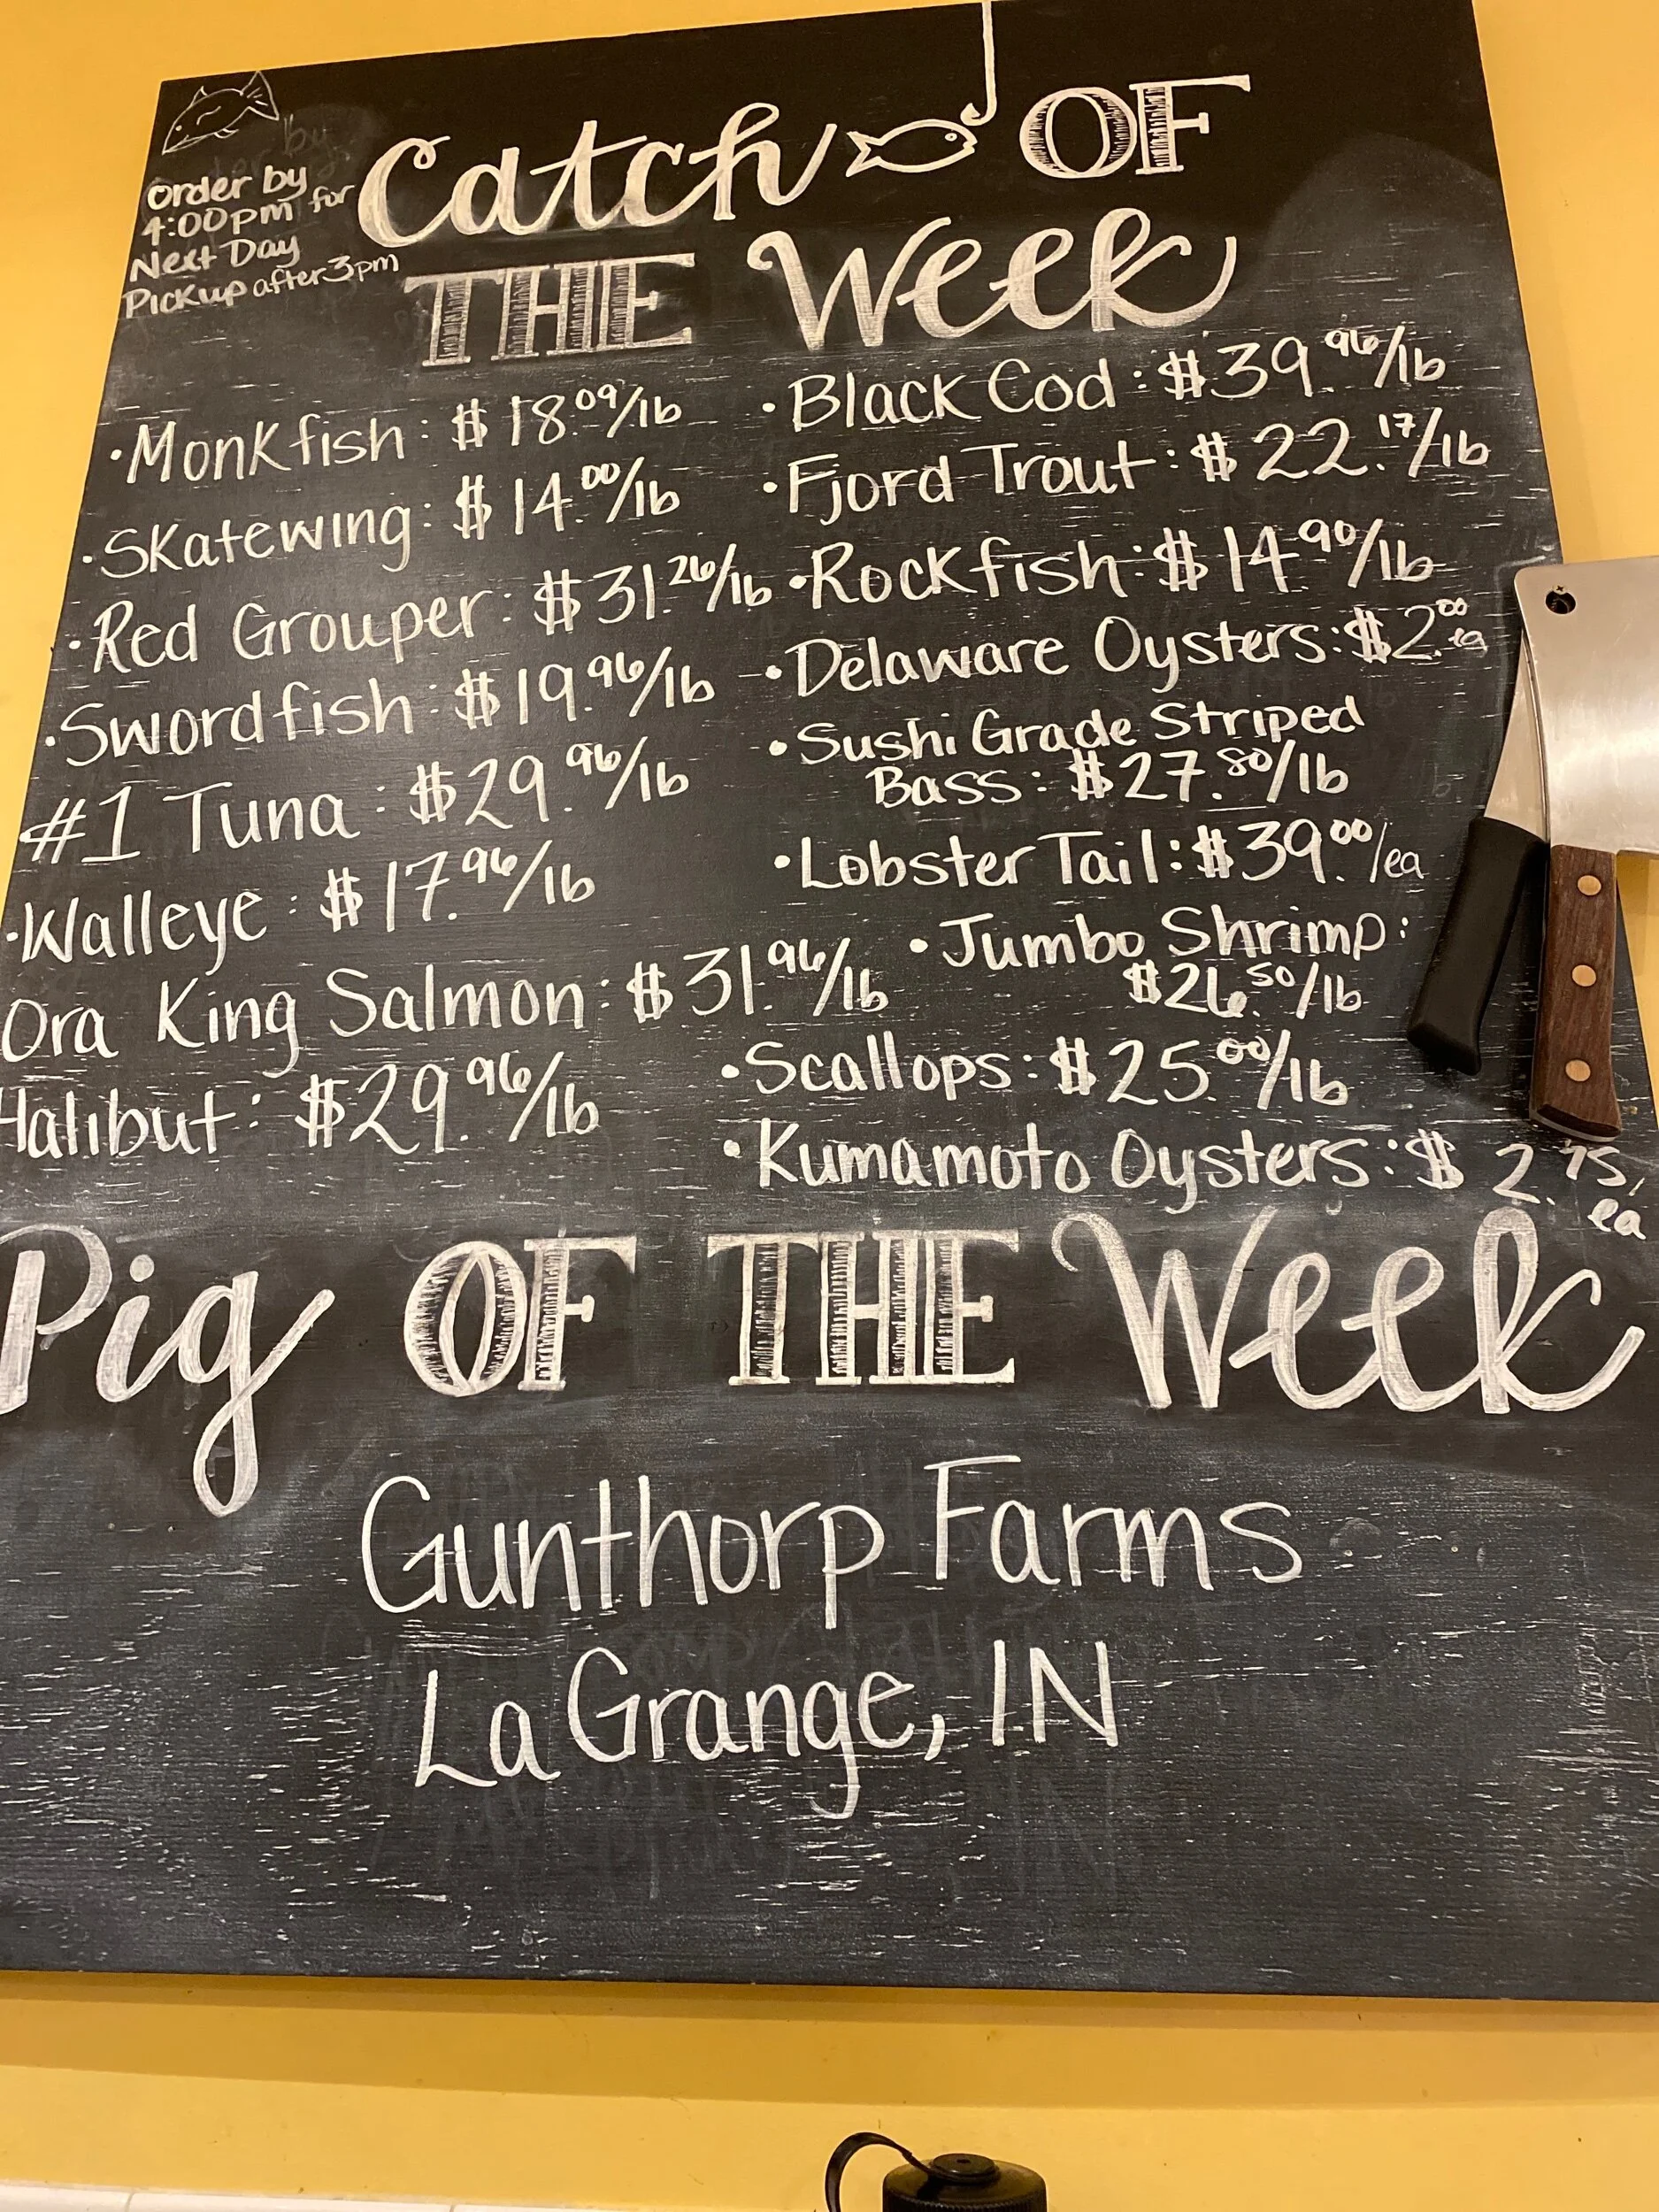 Order by
4:00pm for
Next Day
Pickup after 3pm
Catch OF
THE Week
·Monkfish: $18.09/lb
·Skatewing: $14.00/lb
·Red Grouper: $31.26/lb
·Swordfish: $19.96/lb
#1 Tuna: $29.96/lb
·Walleye: $17.96/lb
Ora King Salmon: $31.96/lb
Halibut: $29.96/lb
·Black Cod: $39.96/lb
·Fjord Trout: $22.17/lb
·Rockfish: $14.90/lb
·Delaware Oysters: $2.00 ea
·Sushi Grade Striped
Bass: $27.80/lb
·Lobster Tail: $39.00/ea
·Jumbo Shrimp:
$26.50/lb
·Scallops: $25.00/lb
·Kumamoto Oysters: $2.75/
ea
Pig OF THE Week
Gunthorp Farms
LaGrange, IN